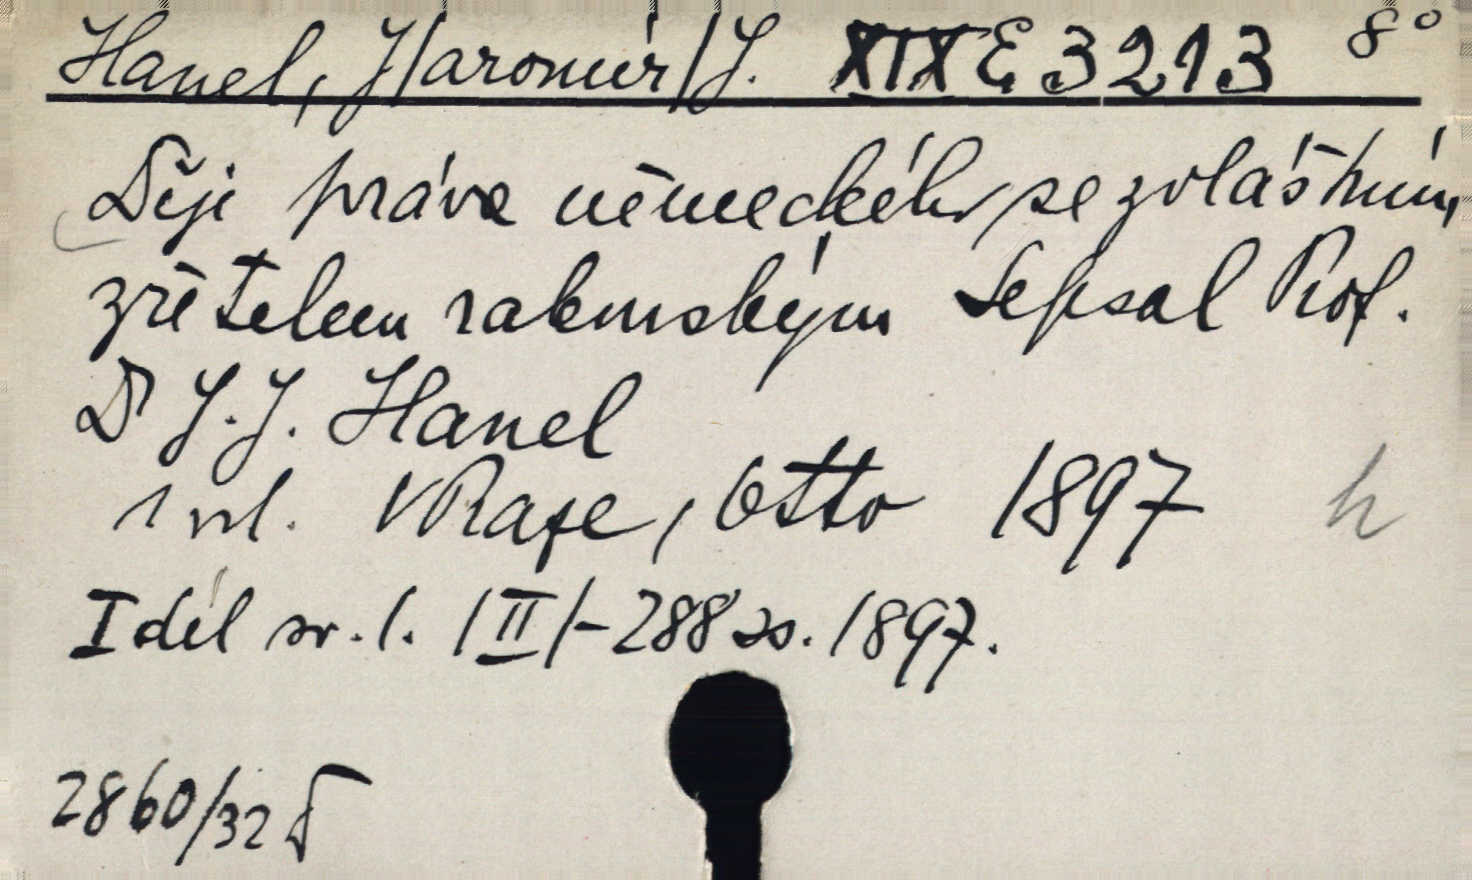 Hanel, J/aromír/J. XIX E 3213 8°
Děje práva německého se zvláštním
zřetelem rakouským Sepsal Prof.
Dr J. J. Hanel
1 vol. V Praze, Otto 1897 h
I díl sv. 1. /II/- 288 ss. 1897.
2860/32